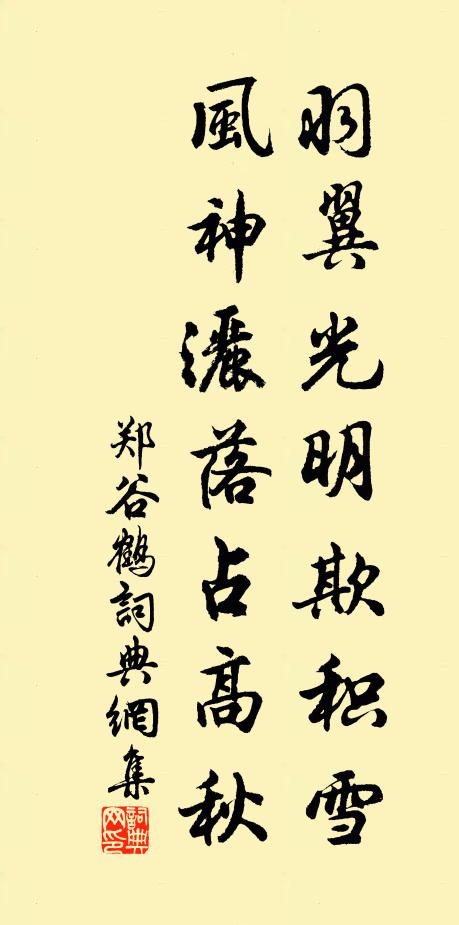 羽翼光明欺积雪
風神灑落占高秋
郑谷鹤詞典網集
詞典網印